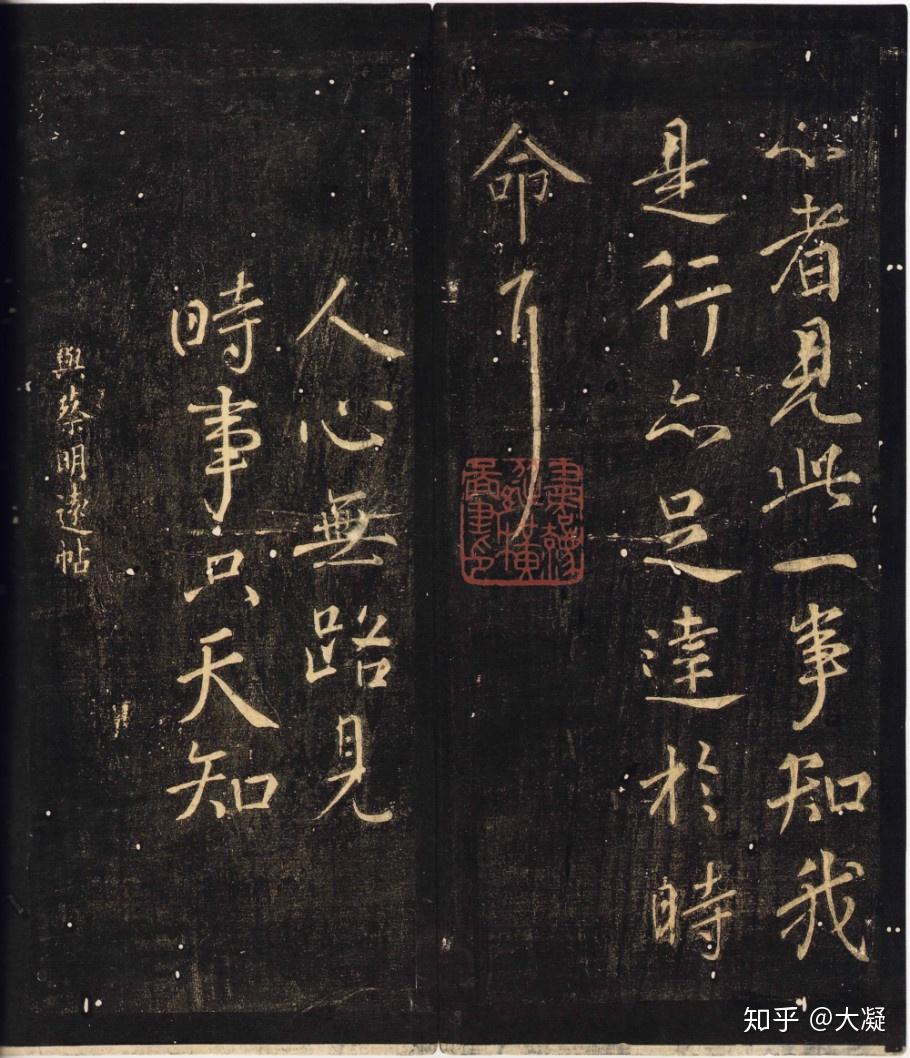 心者見此一事知我
是行亦足達於時
命耳
人心無路見
時事只天知
與蔡明遠帖
知乎 @大凝